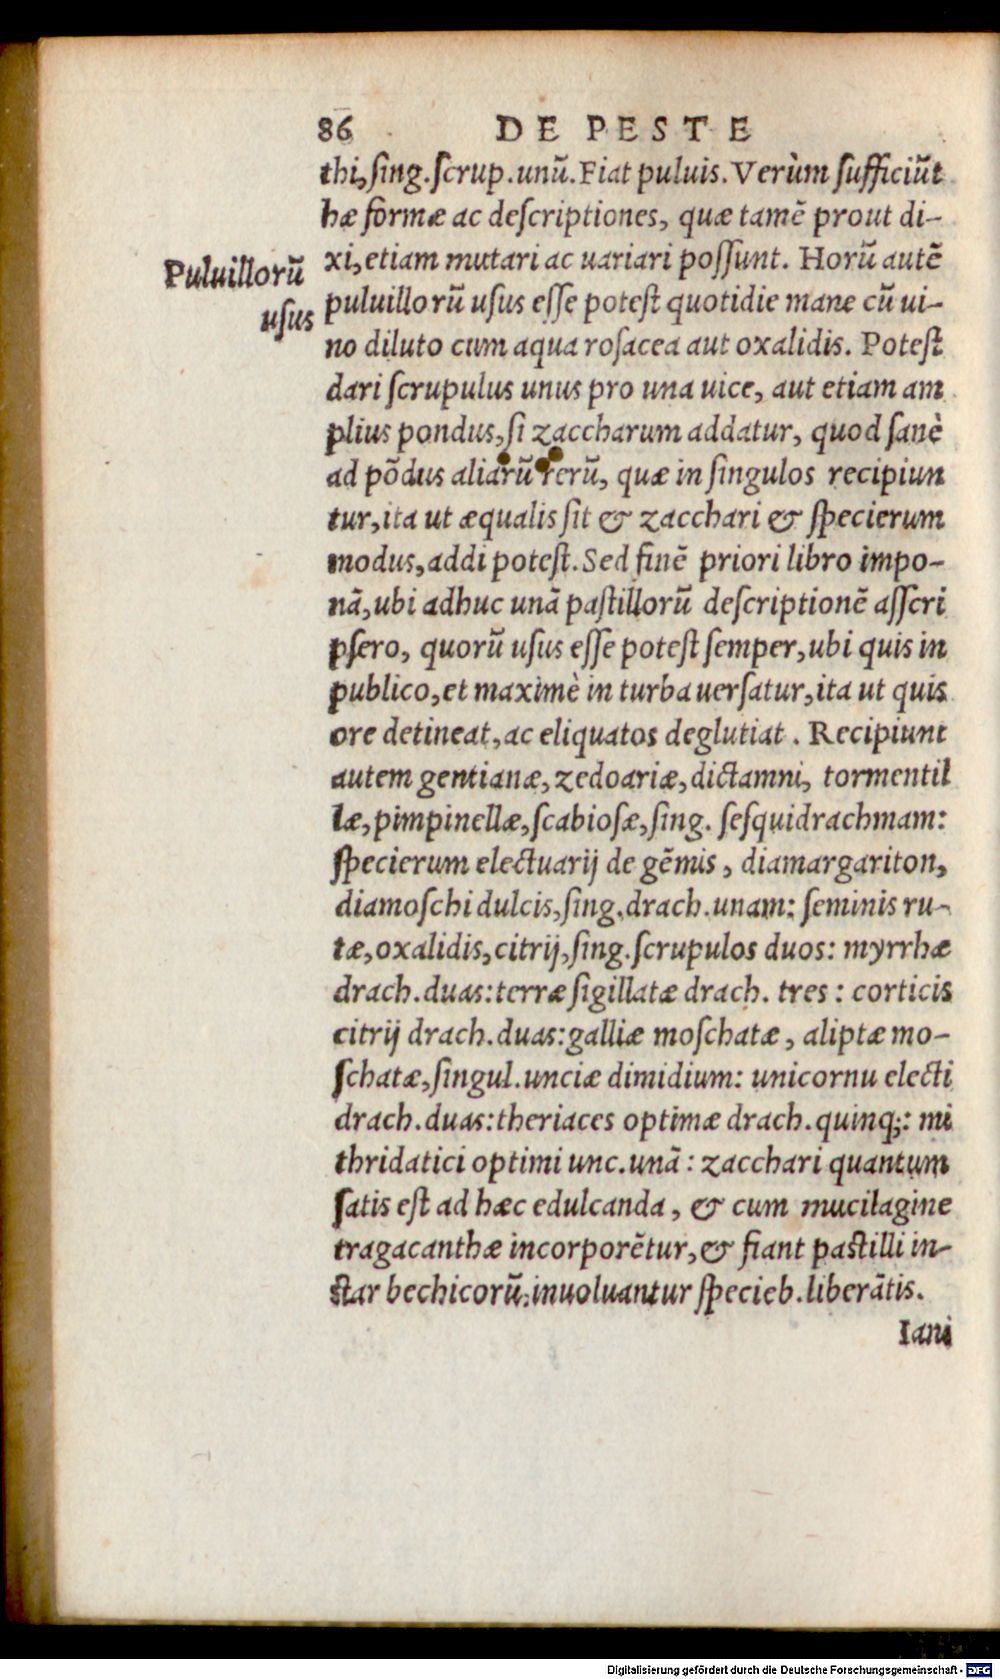 86 DE PESTE
thi, ſing. ſcrup. unũ. Fiat puluis. Verùm ſufficiũt
hæ formæ ac deſcriptiones, quæ tamẽ prout di-
Puluillorũ
uſus
xi, etiam mutari ac uariari poſſunt. Horũ autẽ
puluillorũ uſus eſſe poteſt quotidie mane cũ ui-
no diluto cum aqua roſacea aut oxalidis. Poteſt
dari ſcrupulus unus pro una uice, aut etiam am
plius pondus, ſi zaccharum addatur, quod ſanè
ad põdus aliarũ rerũ, quæ in ſingulos recipiun
tur, ita ut æqualis ſit & zacchari & ſpecierum
modus, addi poteſt. Sed finẽ priori libro impo-
nã, ubi adhuc unã paſtillorũ deſcriptionẽ aſſcri
pſero, quorũ uſus eſſe poteſt ſemper, ubi quis in
publico, et maximè in turba uerſatur, ita ut quis
ore detineat, ac eliquatos deglutiat. Recipiunt
autem gentianæ, zedoariæ, dictamni, tormentil
læ, pimpinellæ, ſcabioſæ, ſing. ſeſquidrachmam:
ſpecierum electuarij de gẽmis, diamargariton,
diamoſchi dulcis, ſing. drach. unam: ſeminis ru-
tæ, oxalidis, citrij, ſing. ſcrupulos duos: myrrhæ
drach. duas: terræ ſigillatæ drach. tres: corticis
citrij drach. duas: galliæ moſchatæ, aliptæ mo-
ſchatæ, ſingul. unciæ dimidium: unicornu electi
drach. duas: theriaces optimæ drach. quinq;: mi
thridatici optimi unc. unã: zacchari quantum
ſatis eſt ad hæc edulcanda, & cum mucilagine
tragacanthæ incorporẽtur, & fiant paſtilli in-
ſtar bechicorũ: inuoluantur ſpecieb. liberãtis.
Iani
Digitalisierung gefördert durch die Deutsche Forschungsgemeinschaft - DFG